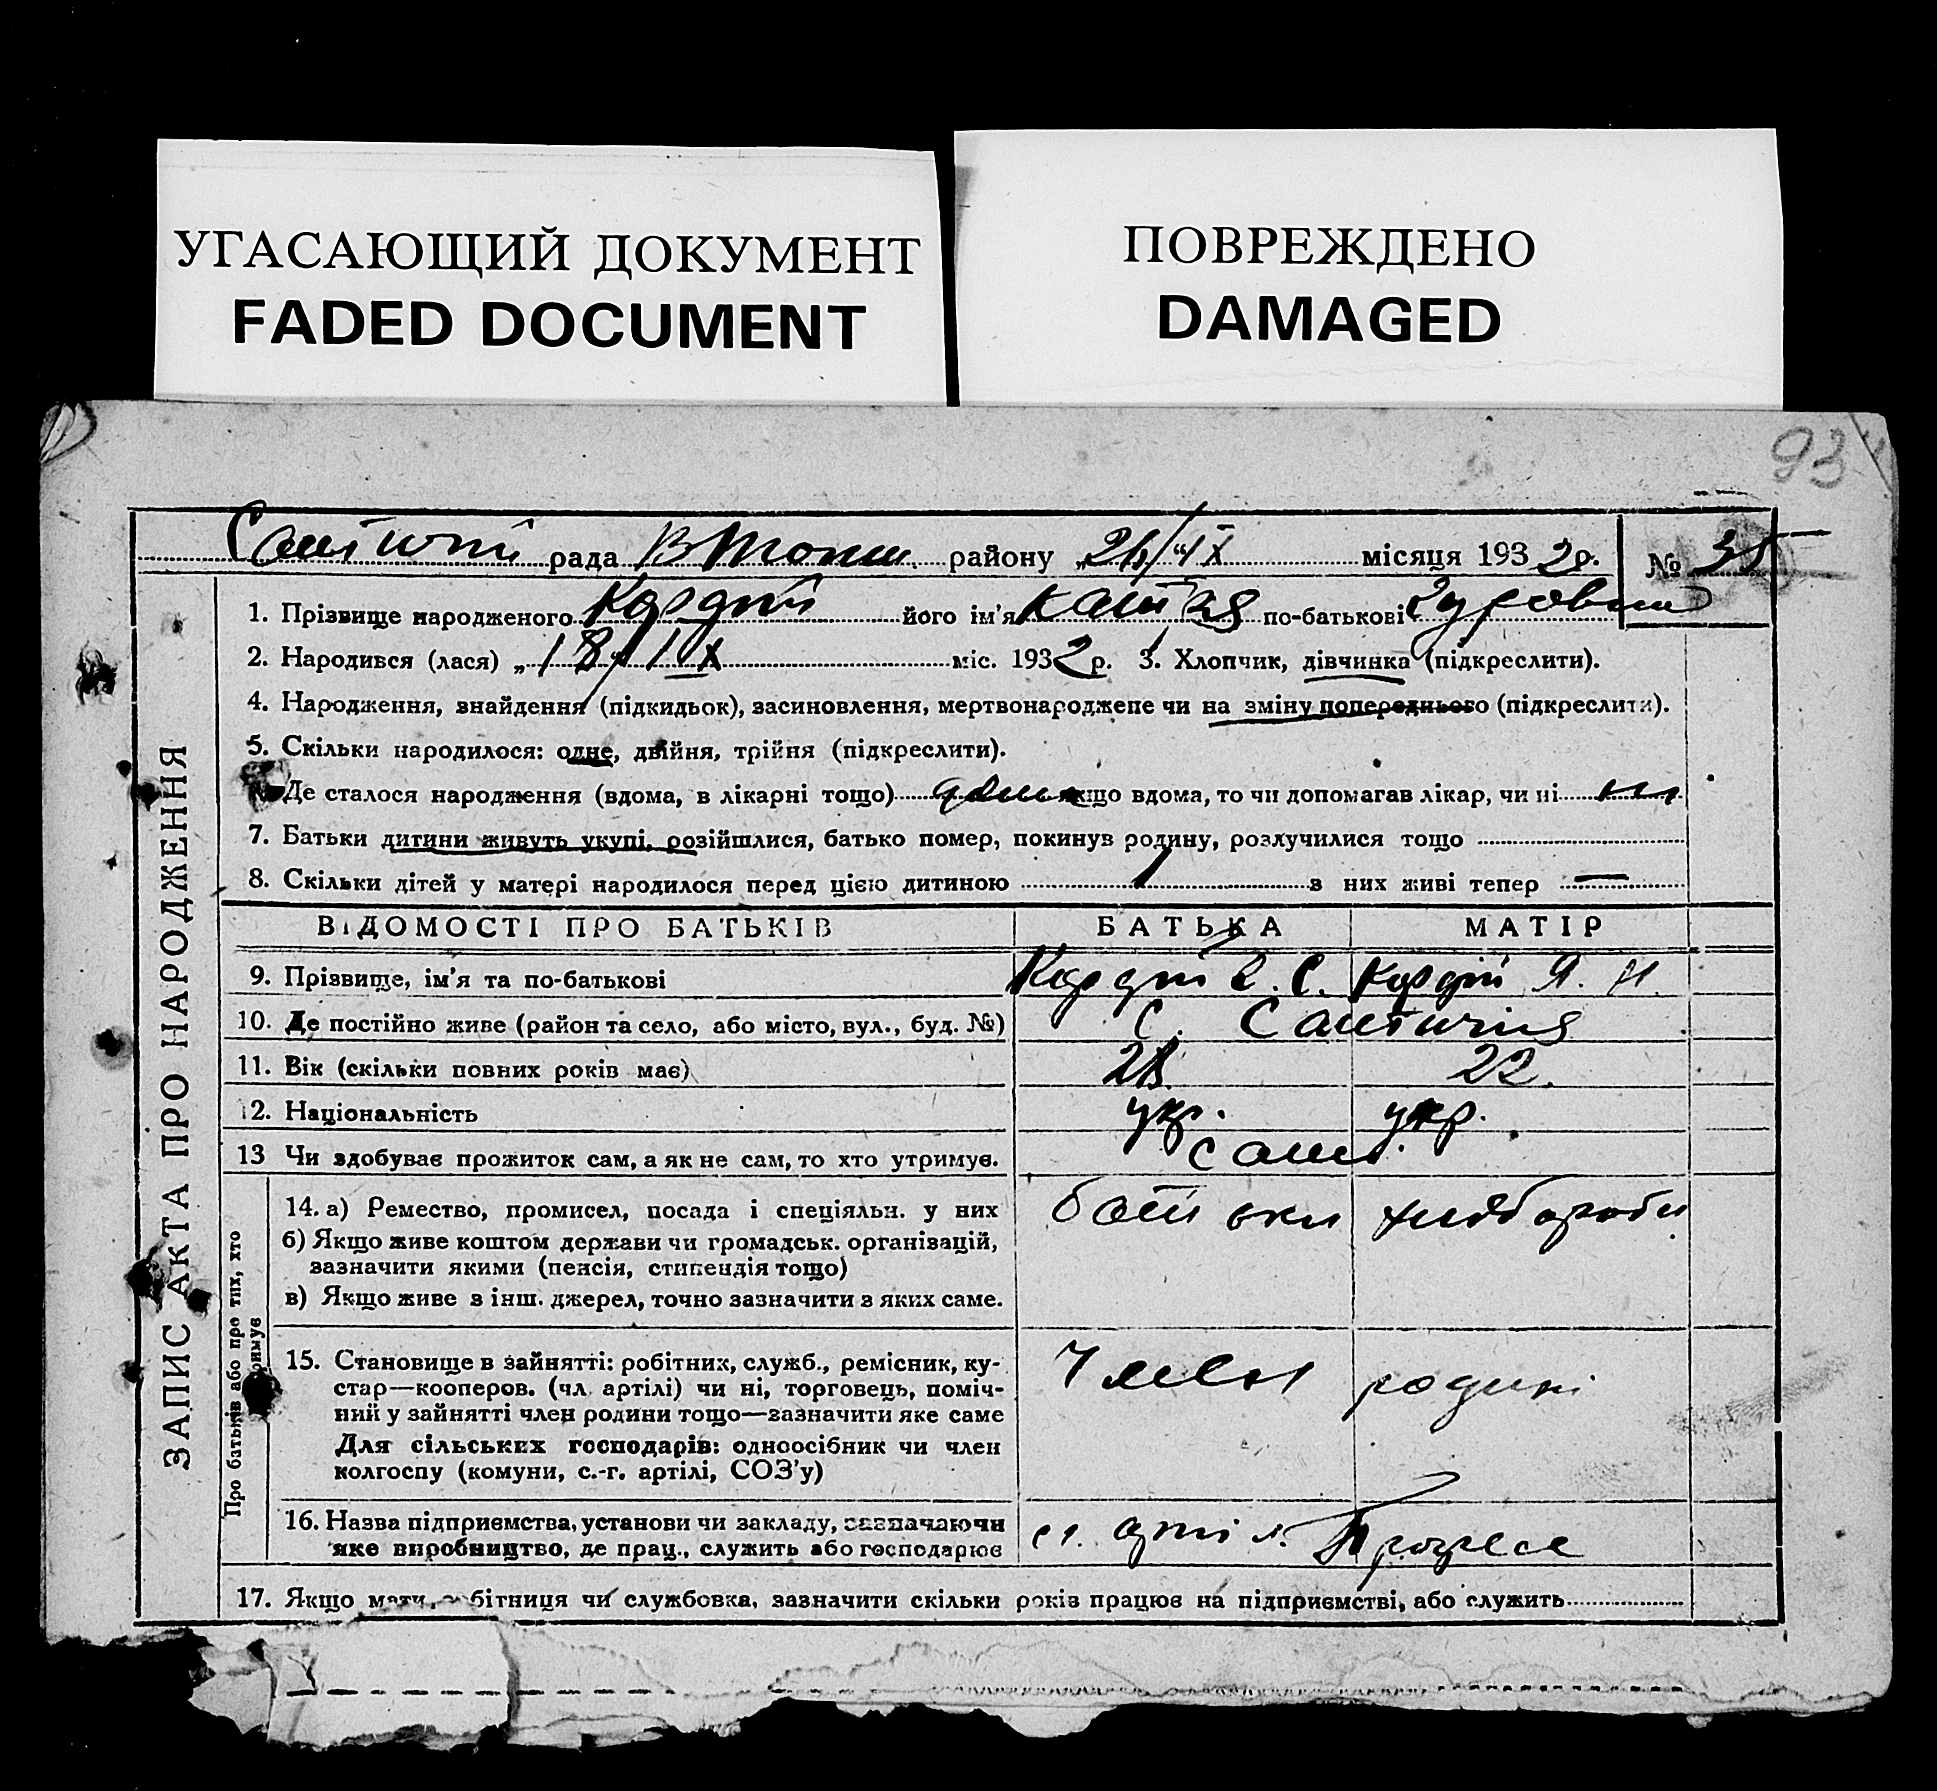 УГАСАЮЩИЙ ДОКУМЕНТ
FADED DOCUMENT
ПОВРЕЖДЕНО
DAMAGED
93
рада району місяця 1932 р. №
1. Прізвище народженого його ім'я по-батькові
2. Народився (лася) „18" IX міс. 1932 р. 3. Хлопчик, дівчинка (підкреслити).
4. Народження, знайдення (підкидьок), засиновлення, мертвонароджене чи на зміну попереднього (підкреслити).
5. Скільки народилося: одне, двійня, трійня (підкреслити).
Де сталося народження (вдома, в лікарні тощо) дома якщо вдома, то чи допомагав лікар, чи ні ні
7. Батьки дитини живуть укупі, розійшлися, батько помер, покинув родину, розлучилися тощо
8. Скільки дітей у матері народилося перед цією дитиною 1 з них живі тепер —
ВІДОМОСТІ ПРО БАТЬКІВ БАТЬКА МАТІР
9. Прізвище, ім'я та по-батькові
10. Де постійно живе (район та село, або місто, вул., буд. №) с.
11. Вік (скільки повних років має) 28. 22.
12. Національність укр. укр.
13 Чи здобуває прожиток сам, а як не сам, то хто утримує. сами.
14. а) Ремество, промисел, посада і спеціяльн. у них батьки хлібороби
б) Якщо живе коштом держави чи громадськ. організацій,
зазначити якими (пенсія, стипендія тощо)
в) Якщо живе з інш. джерел, точно зазначити з яких саме.
15. Становище в зайнятті: робітник, служб., ремісник, ку-
стар—кооперов. (чл. артілі) чи ні, торговець, поміч-
ний у зайнятті член родини тощо—зазначити яке саме
Для сільських господарів: одноосібник чи член
колгоспу (комуни, с.-г. артілі, СОЗ'у)
члени родині
16. Назва підприємства, установи чи закладу, зазначаючи
яке виробництво, де прац., служить або господарює
Прогресс
17. Якщо мати робітниця чи службовка, зазначити скільки років працює на підприємстві, або служить
ЗАПИС АКТА ПРО НАРОДЖЕННЯ
Про батьків або про тих, хто